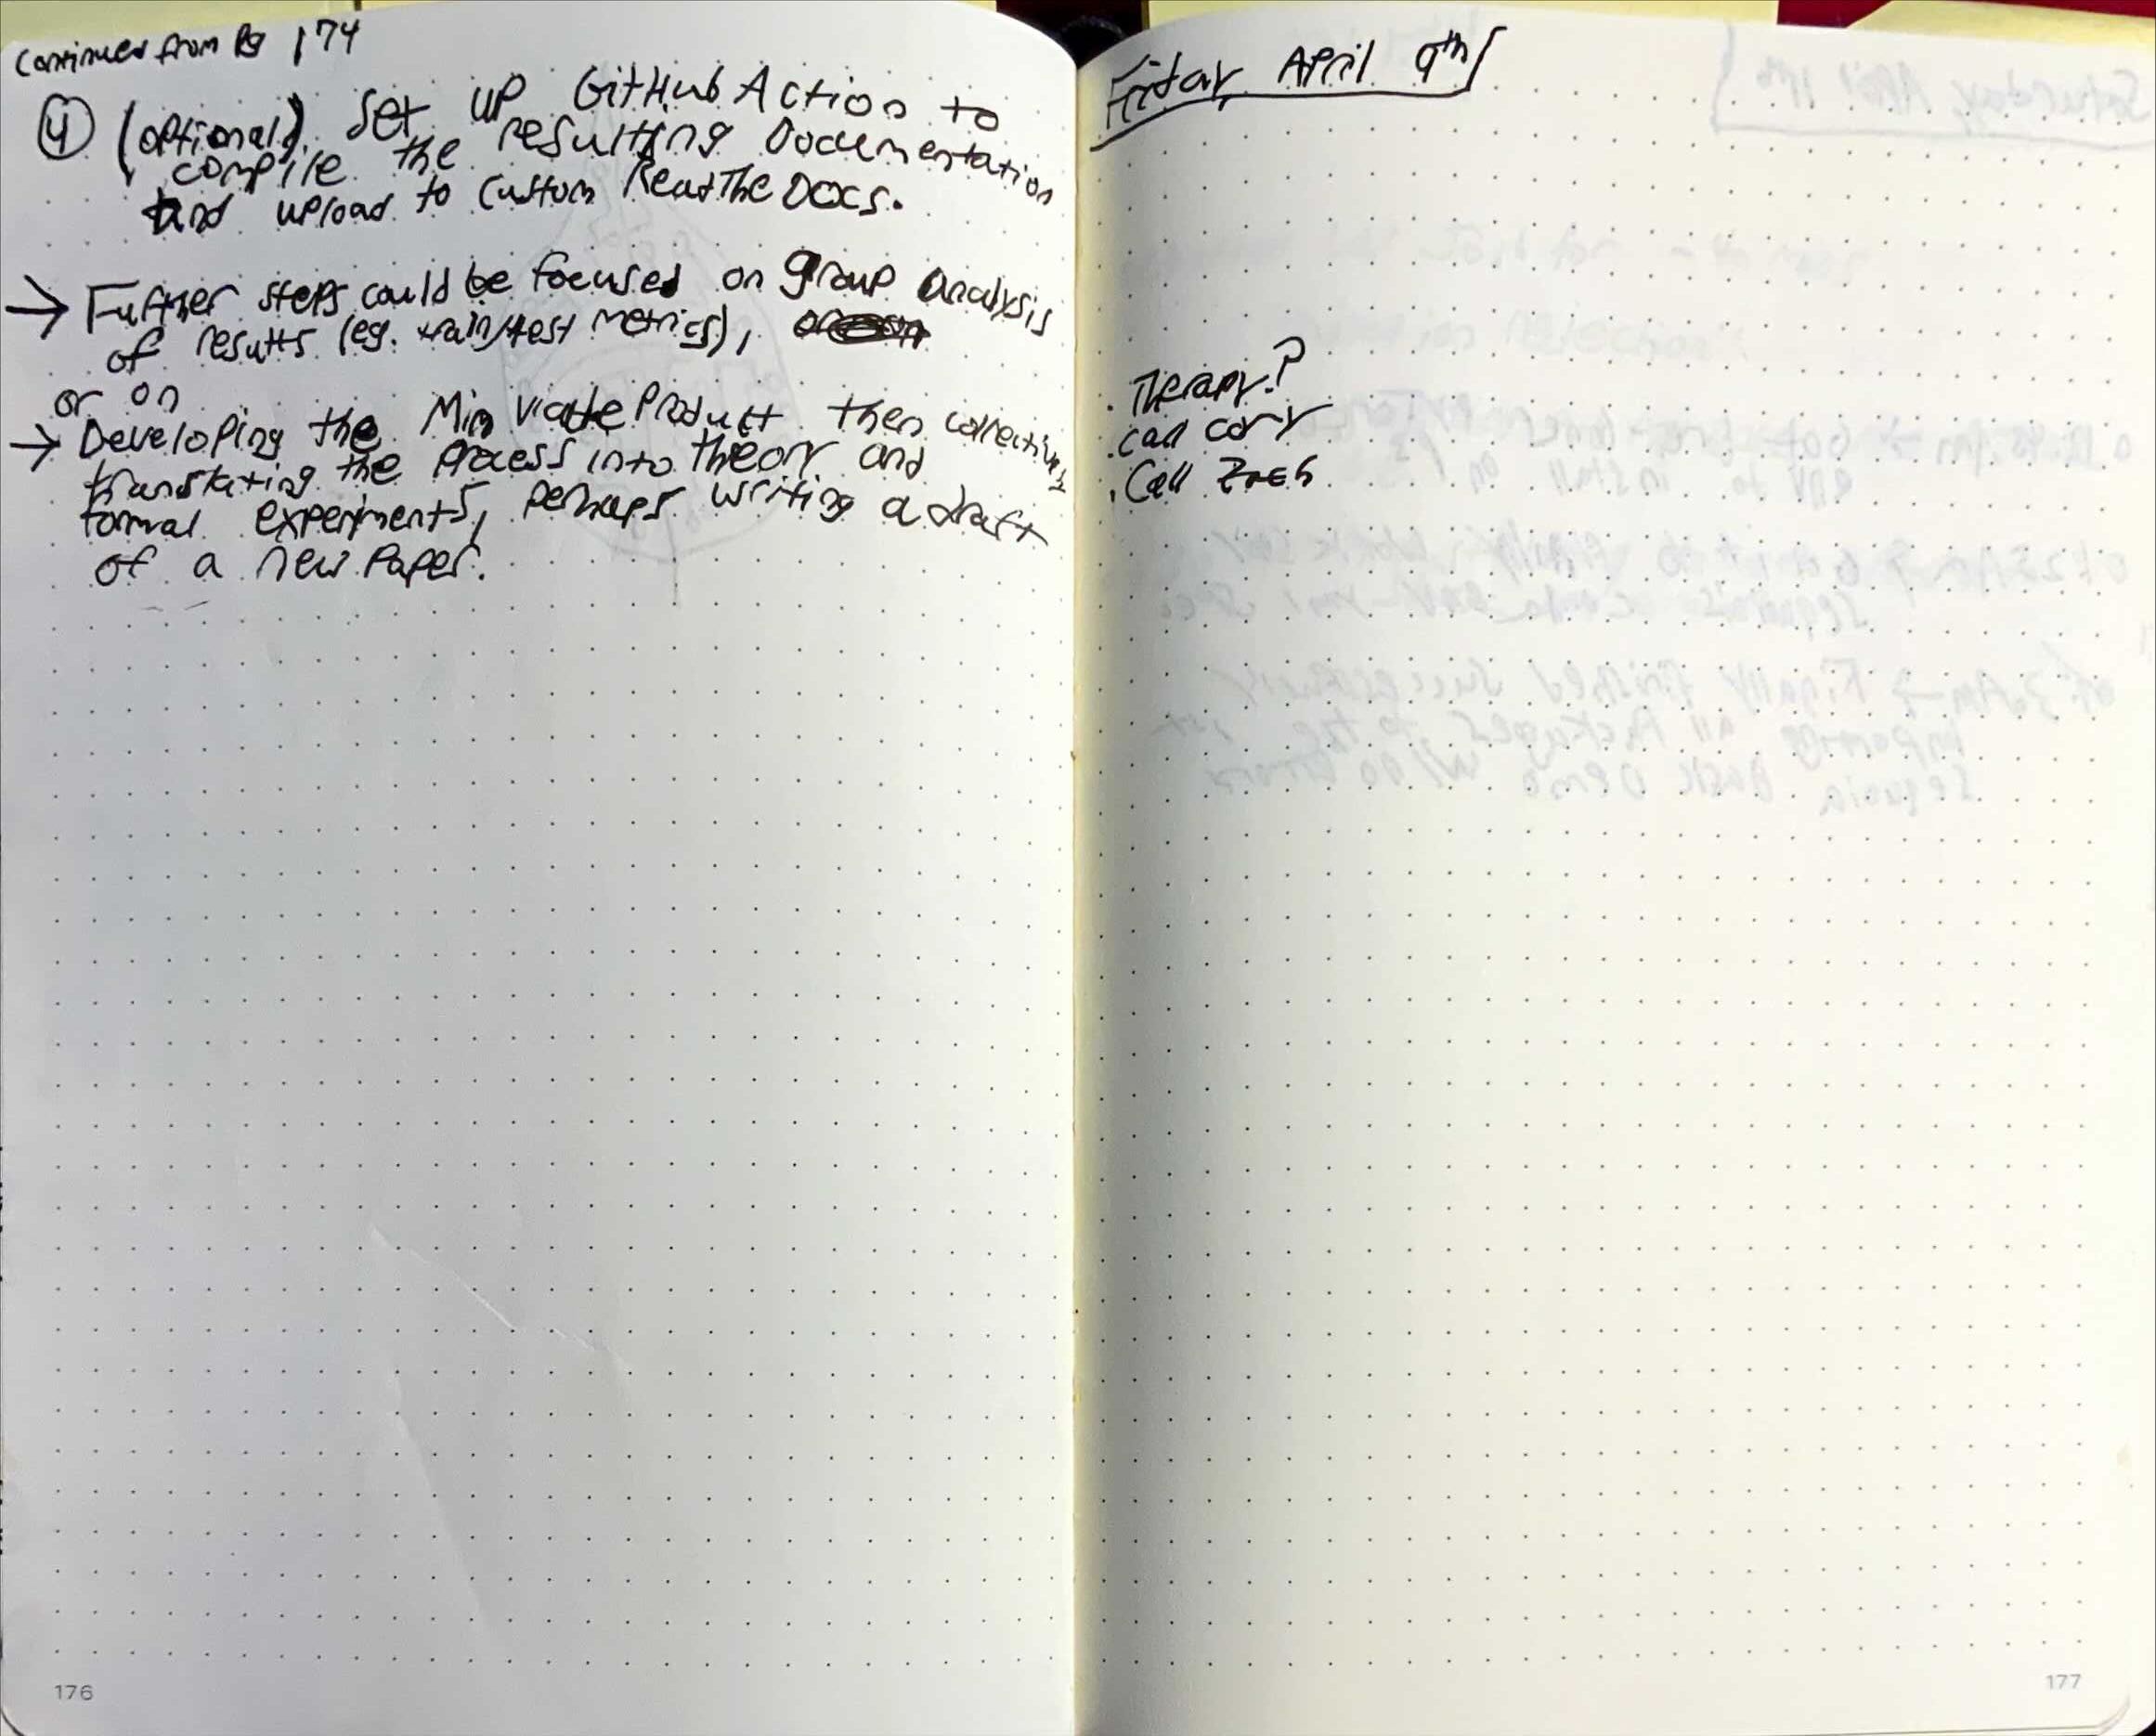 Continued from Pg 174
④ (optional) Set up GitHub Action to
compile the resulting Documentation
and upload to custom ReadTheDocs.
→ Further steps could be focused on group analysis
of results (eg. train/test metrics),
or on
→ Developing the Min Viable Product then collectively
translating the process into theory and
formal experiments, perhaps writing a draft
of a new Paper.
176
Friday April 9th
. Therapy?
. call Cory
. Call
177